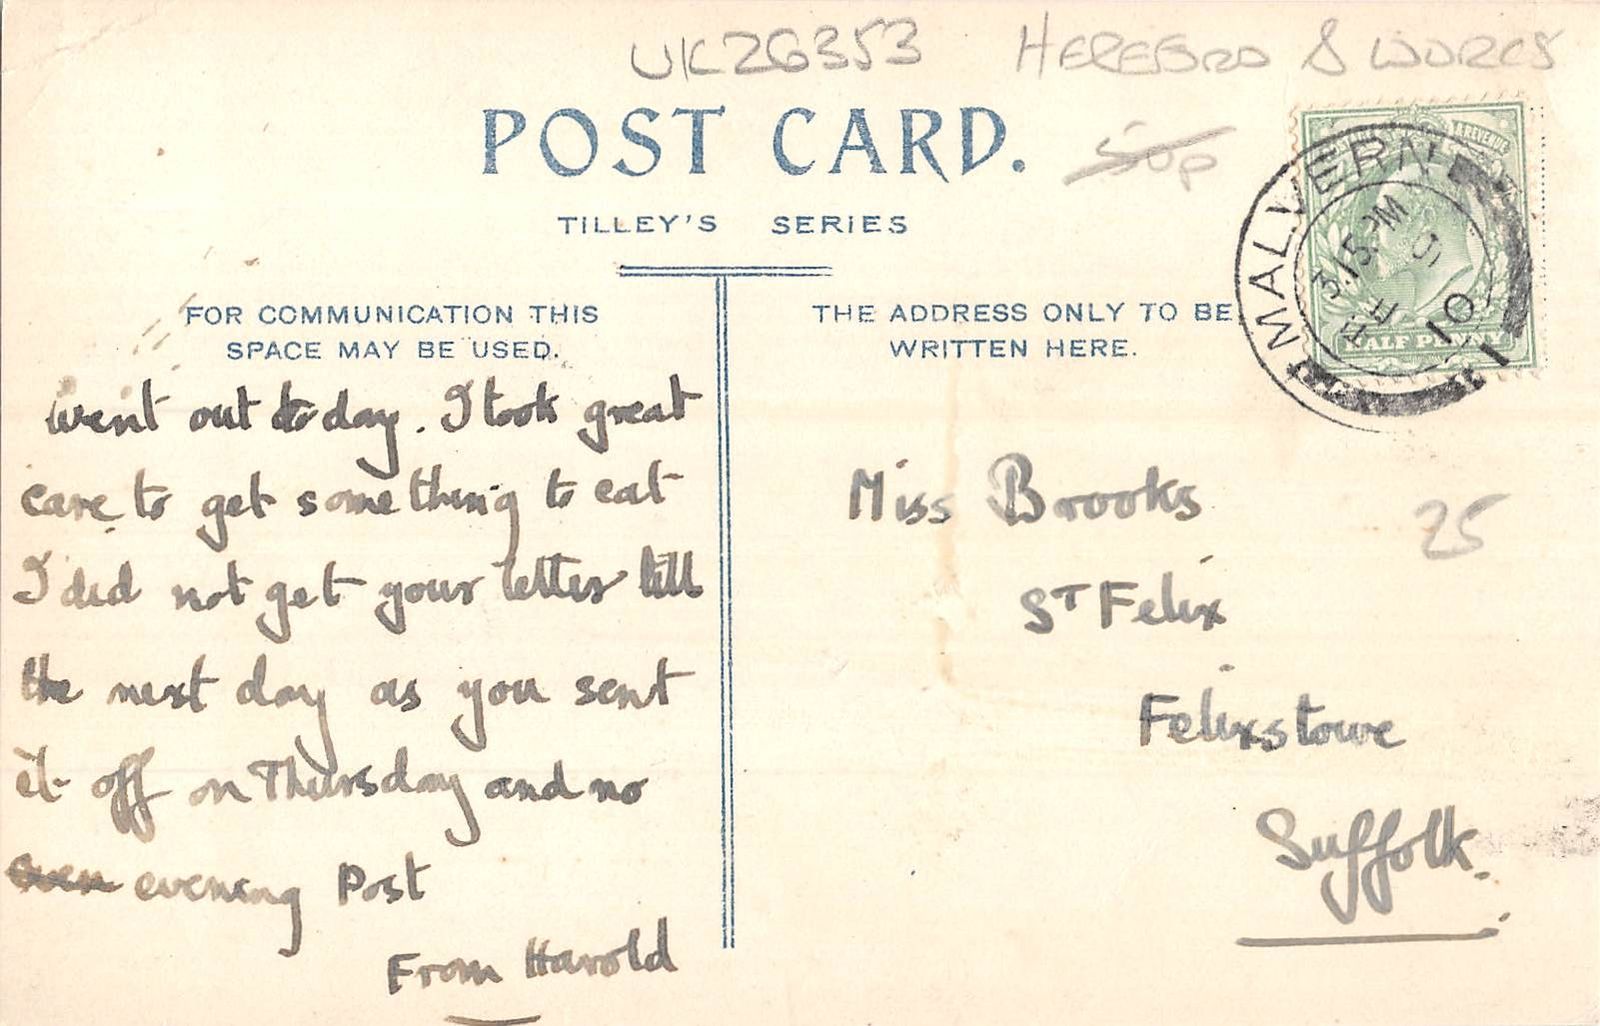 UK26353 HEREFORD & WORCS
POST CARD.
50p
TILLEY'S SERIES
FOR COMMUNICATION THIS
SPACE MAY BE USED.
THE ADDRESS ONLY TO BE
WRITTEN HERE.
& REVENUE
HALF PENNY
MALVERN
3.15 PM
10
went out to day. I took great
care to get something to eat
I did not get your letter till
the next day as you sent
it off on Thursday and no
even evening Post
From Harold
Miss Brooks
25
St Felix
Felixstowe
Suffolk.